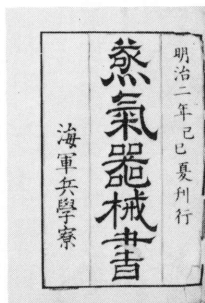 明治二年己巳夏刊行
蒸氣器械書
海軍兵學寮